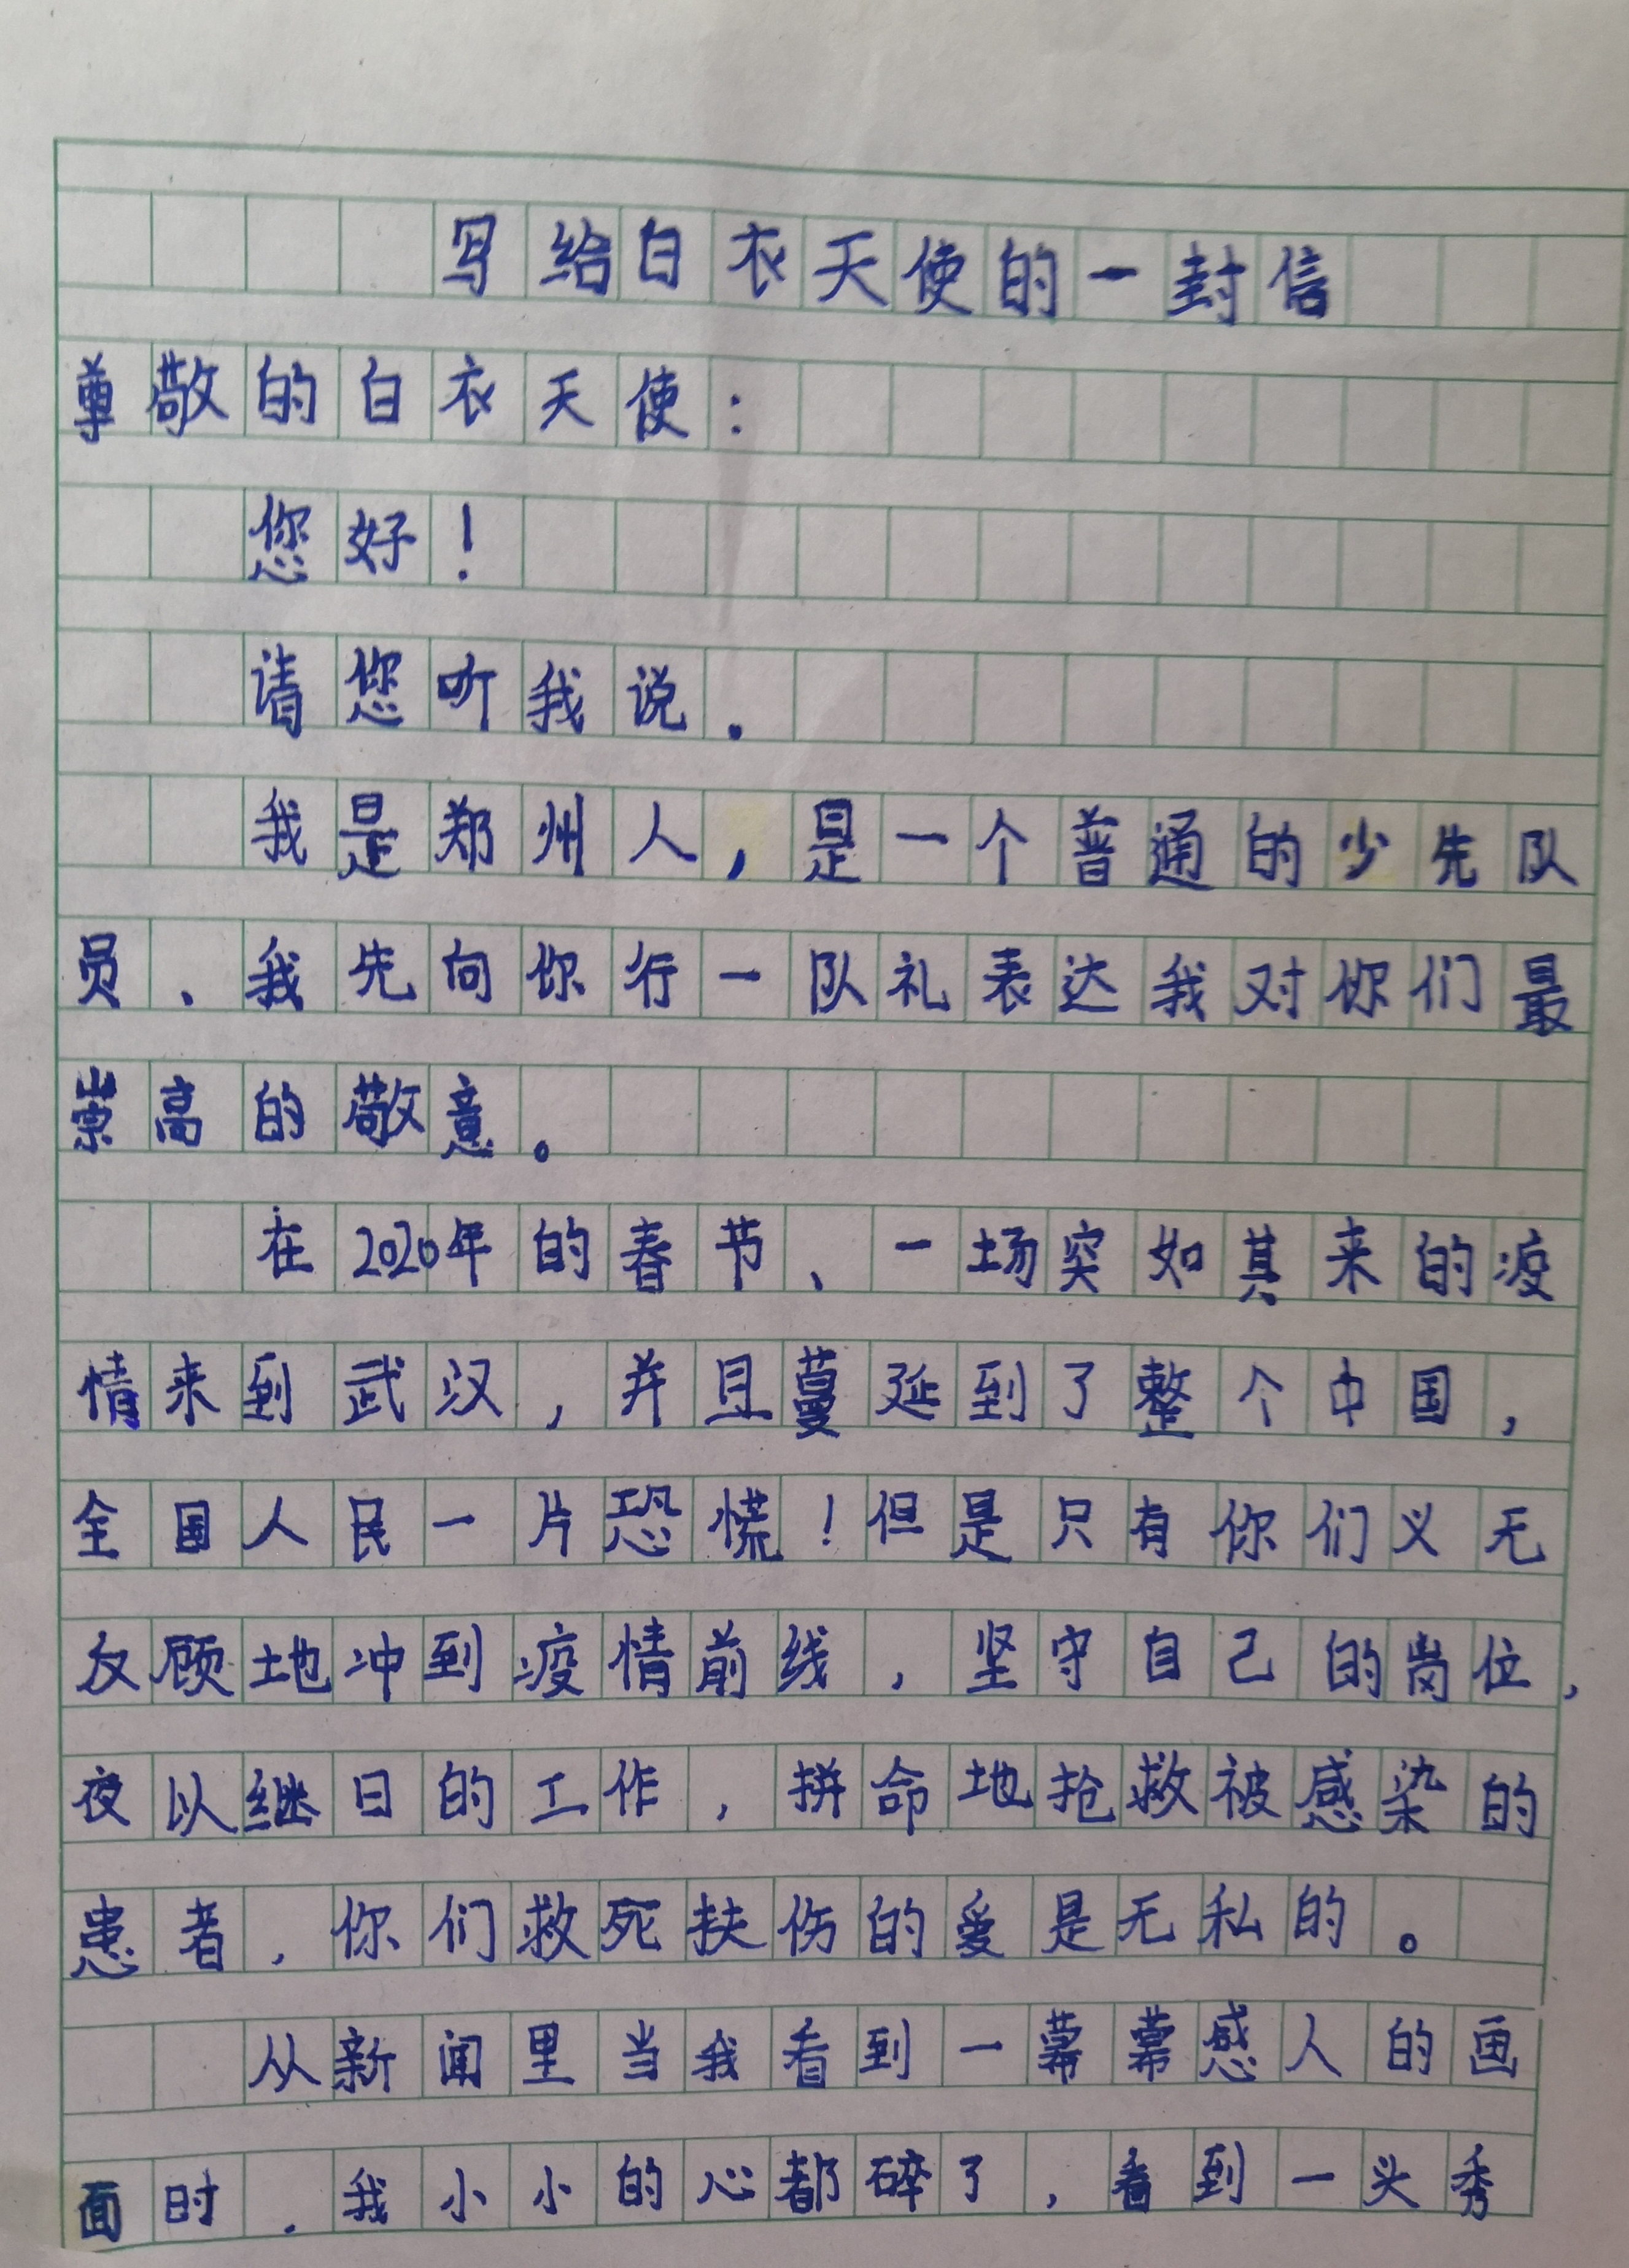 写给白衣天使的一封信
尊敬的白衣天使：
您好！
请您听我说.
我是郑州人，是一个普通的少先队
员、我先向你行一队礼表达我对你们最
崇高的敬意。
在2020年的春节、一场突如其来的疫
情来到武汉，并且蔓延到了整个中国，
全国人民一片恐慌！但是只有你们义无
反顾地冲到疫情前线，坚守自己的岗位，
夜以继日的工作，拼命地抢救被感染的
患者，你们救死扶伤的爱是无私的。
从新闻里当我看到一幕幕感人的画
面时.我小小的心都碎了，看到一头秀